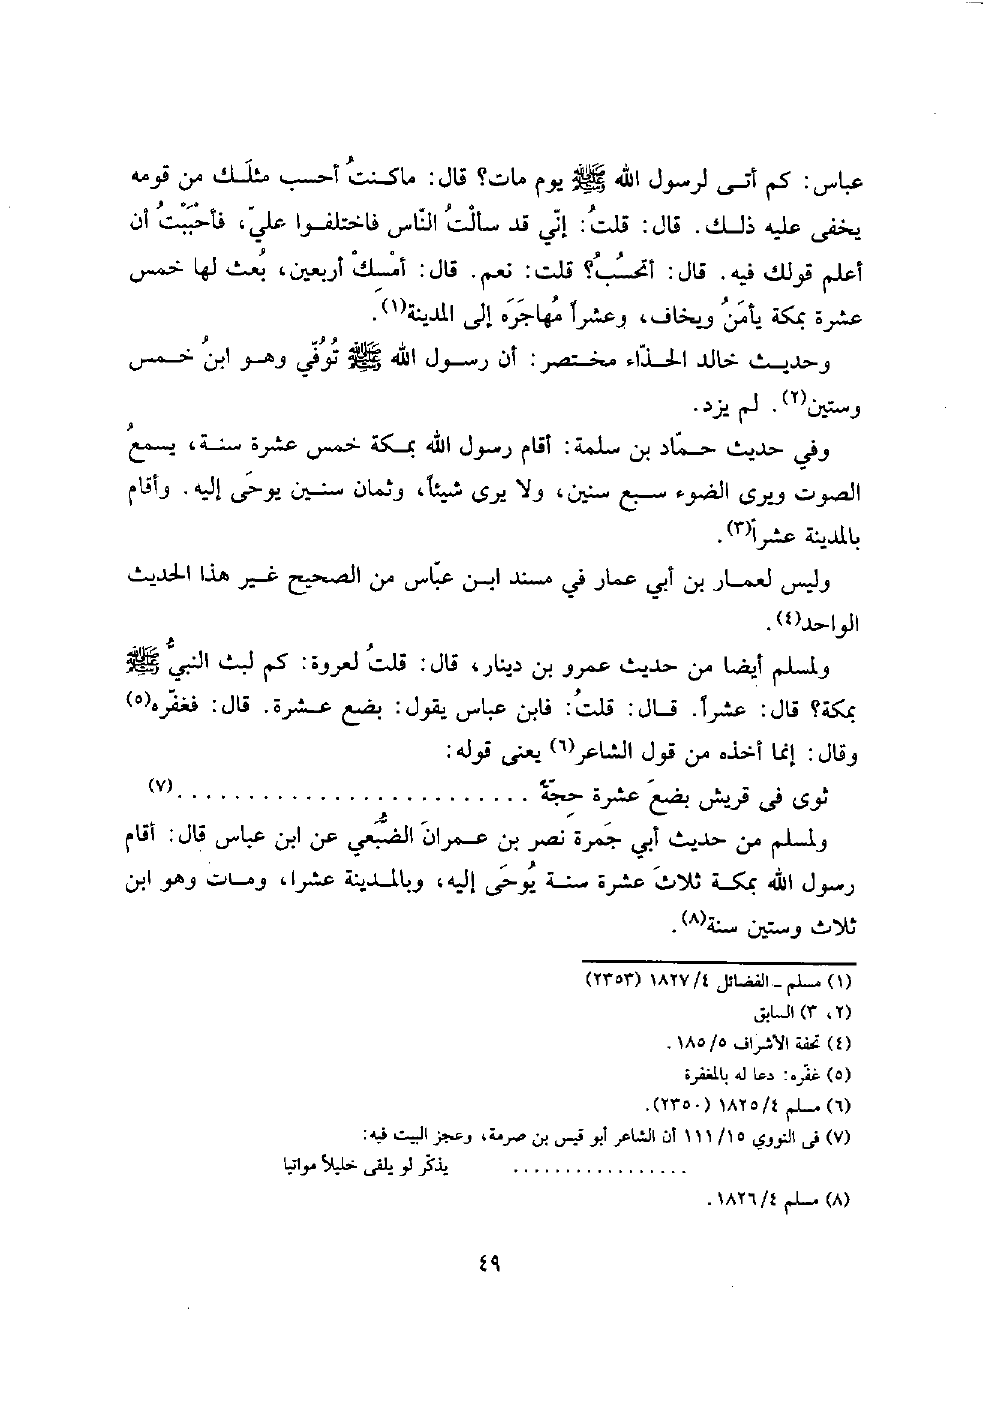 عباس: كم أتى لرسول الله ﷺ يوم مات؟ قال: ماكنتُ أحسب مثلَك من قومه
يخفى عليه ذلك. قال: قلتُ: إنّي قد سألْتُ النّاس فاختلفوا عليّ، فأحْبَبْتُ أن
أعلم قولك فيه. قال: أتحسُبُ؟ قلت: نعم. قال: أمْسِكْ أربعين، بُعث لها خمس
عشرة بمكة يأمَنُ ويخاف، وعشراً مُهاجَرَه إلى المدينة(١).
وحديث خالد الحذّاء مختصر: أن رسول الله ﷺ تُوُفّي وهو ابنُ خمس
وستين(٢). لم يزد.
وفي حديث حمّاد بن سلمة: أقام رسول الله بمكة خمس عشرة سنة، يسمعُ
الصوت ويرى الضوء سبع سنين، ولا يرى شيئاً، وثمان سنين يوحَى إليه. وأقام
بالمدينة عشراً(٣).
وليس لعمار بن أبي عمار في مسند ابن عبّاس من الصحيح غير هذا الحديث
الواحد(٤).
ولمسلم أيضا من حديث عمرو بن دينار، قال: قلتُ لعروة: كم لبث النبيُّ ﷺ
بمكة؟ قال: عشراً. قال: قلتُ: فابن عباس يقول: بضع عشرة. قال: فغفّره(٥)
وقال: إنما أخذه من قول الشاعر(٦) يعنى قوله:
ثوى فى قريش بضعَ عشرة حِجةً ........................(٧)
ولمسلم من حديث أبي جَمرة نصر بن عمرانَ الضُّبَعي عن ابن عباس قال: أقام
رسول الله بمكة ثلاثَ عشرة سنة يُوحَى إليه، وبالمدينة عشرا، ومات وهو ابن
ثلاث وستين سنة(٨).
(١) مسلم ـ الفضائل ٤/ ١٨٢٧ (٢٣٥٣)
(٢، ٣) السابق
(٤) تحفة الأشراف ٥/ ١٨٥.
(٥) غفّره: دعا له بالمغفرة
(٦) مسلم ٤/ ١٨٢٥ (٢٣٥٠).
(٧) فى النووي ١٥/ ١١١ أن الشاعر أبو قيس بن صرمة، وعجز البيت فيه:
................. يذكّر لو يلقى خليلاً مواتيا
(٨) مسلم ٤/ ١٨٢٦.
٤٩